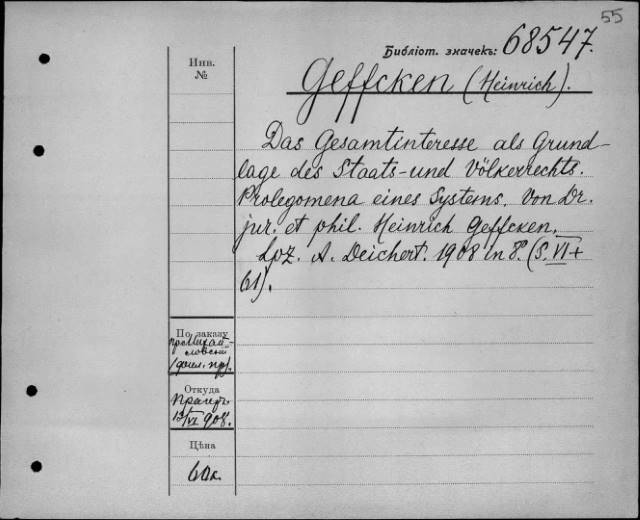 55
Библіот. значекъ: 68547.
Инв.
№
Geffcken (Heinrich).
Das Gesamtinteresse als Grund-
lage des Staats- und Völkerrechts.
Prolegomena eines Systems. Von Dr.
jur. et phil. Heinrich Geffcken.
Lpz. A. Deichert. 1908 in 8º. (S. VI +
61).
По заказу
Откуда
13/VI 908.
Цѣна
60к.